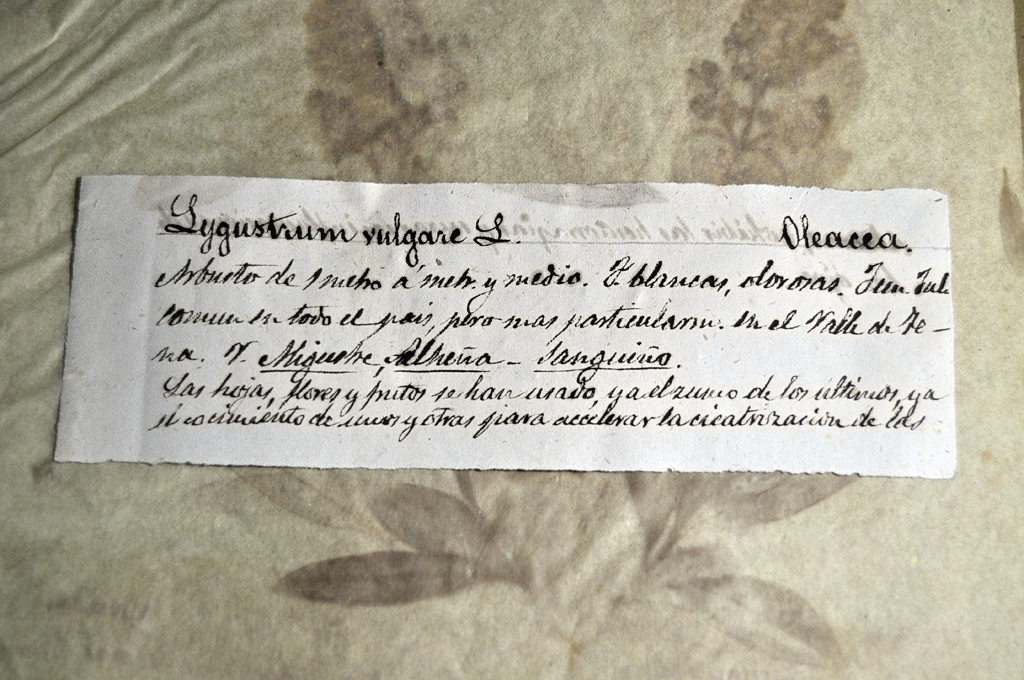 Lygustrum vulgare L. Oleacea.
Arbusto de 1 metro á metr. y medio. F. blancas, olorosas. Jun. Jul.
comun en todo el pais, pero mas particularm. en el Valle de Te-
na. V. Miguestre, Alheña - Sanguiño.
Las hojas, flores y frutos se han usado, ya el zumo de los últimos, ya
el cocimiento de unos y otras para accelerar la cicatrización de las